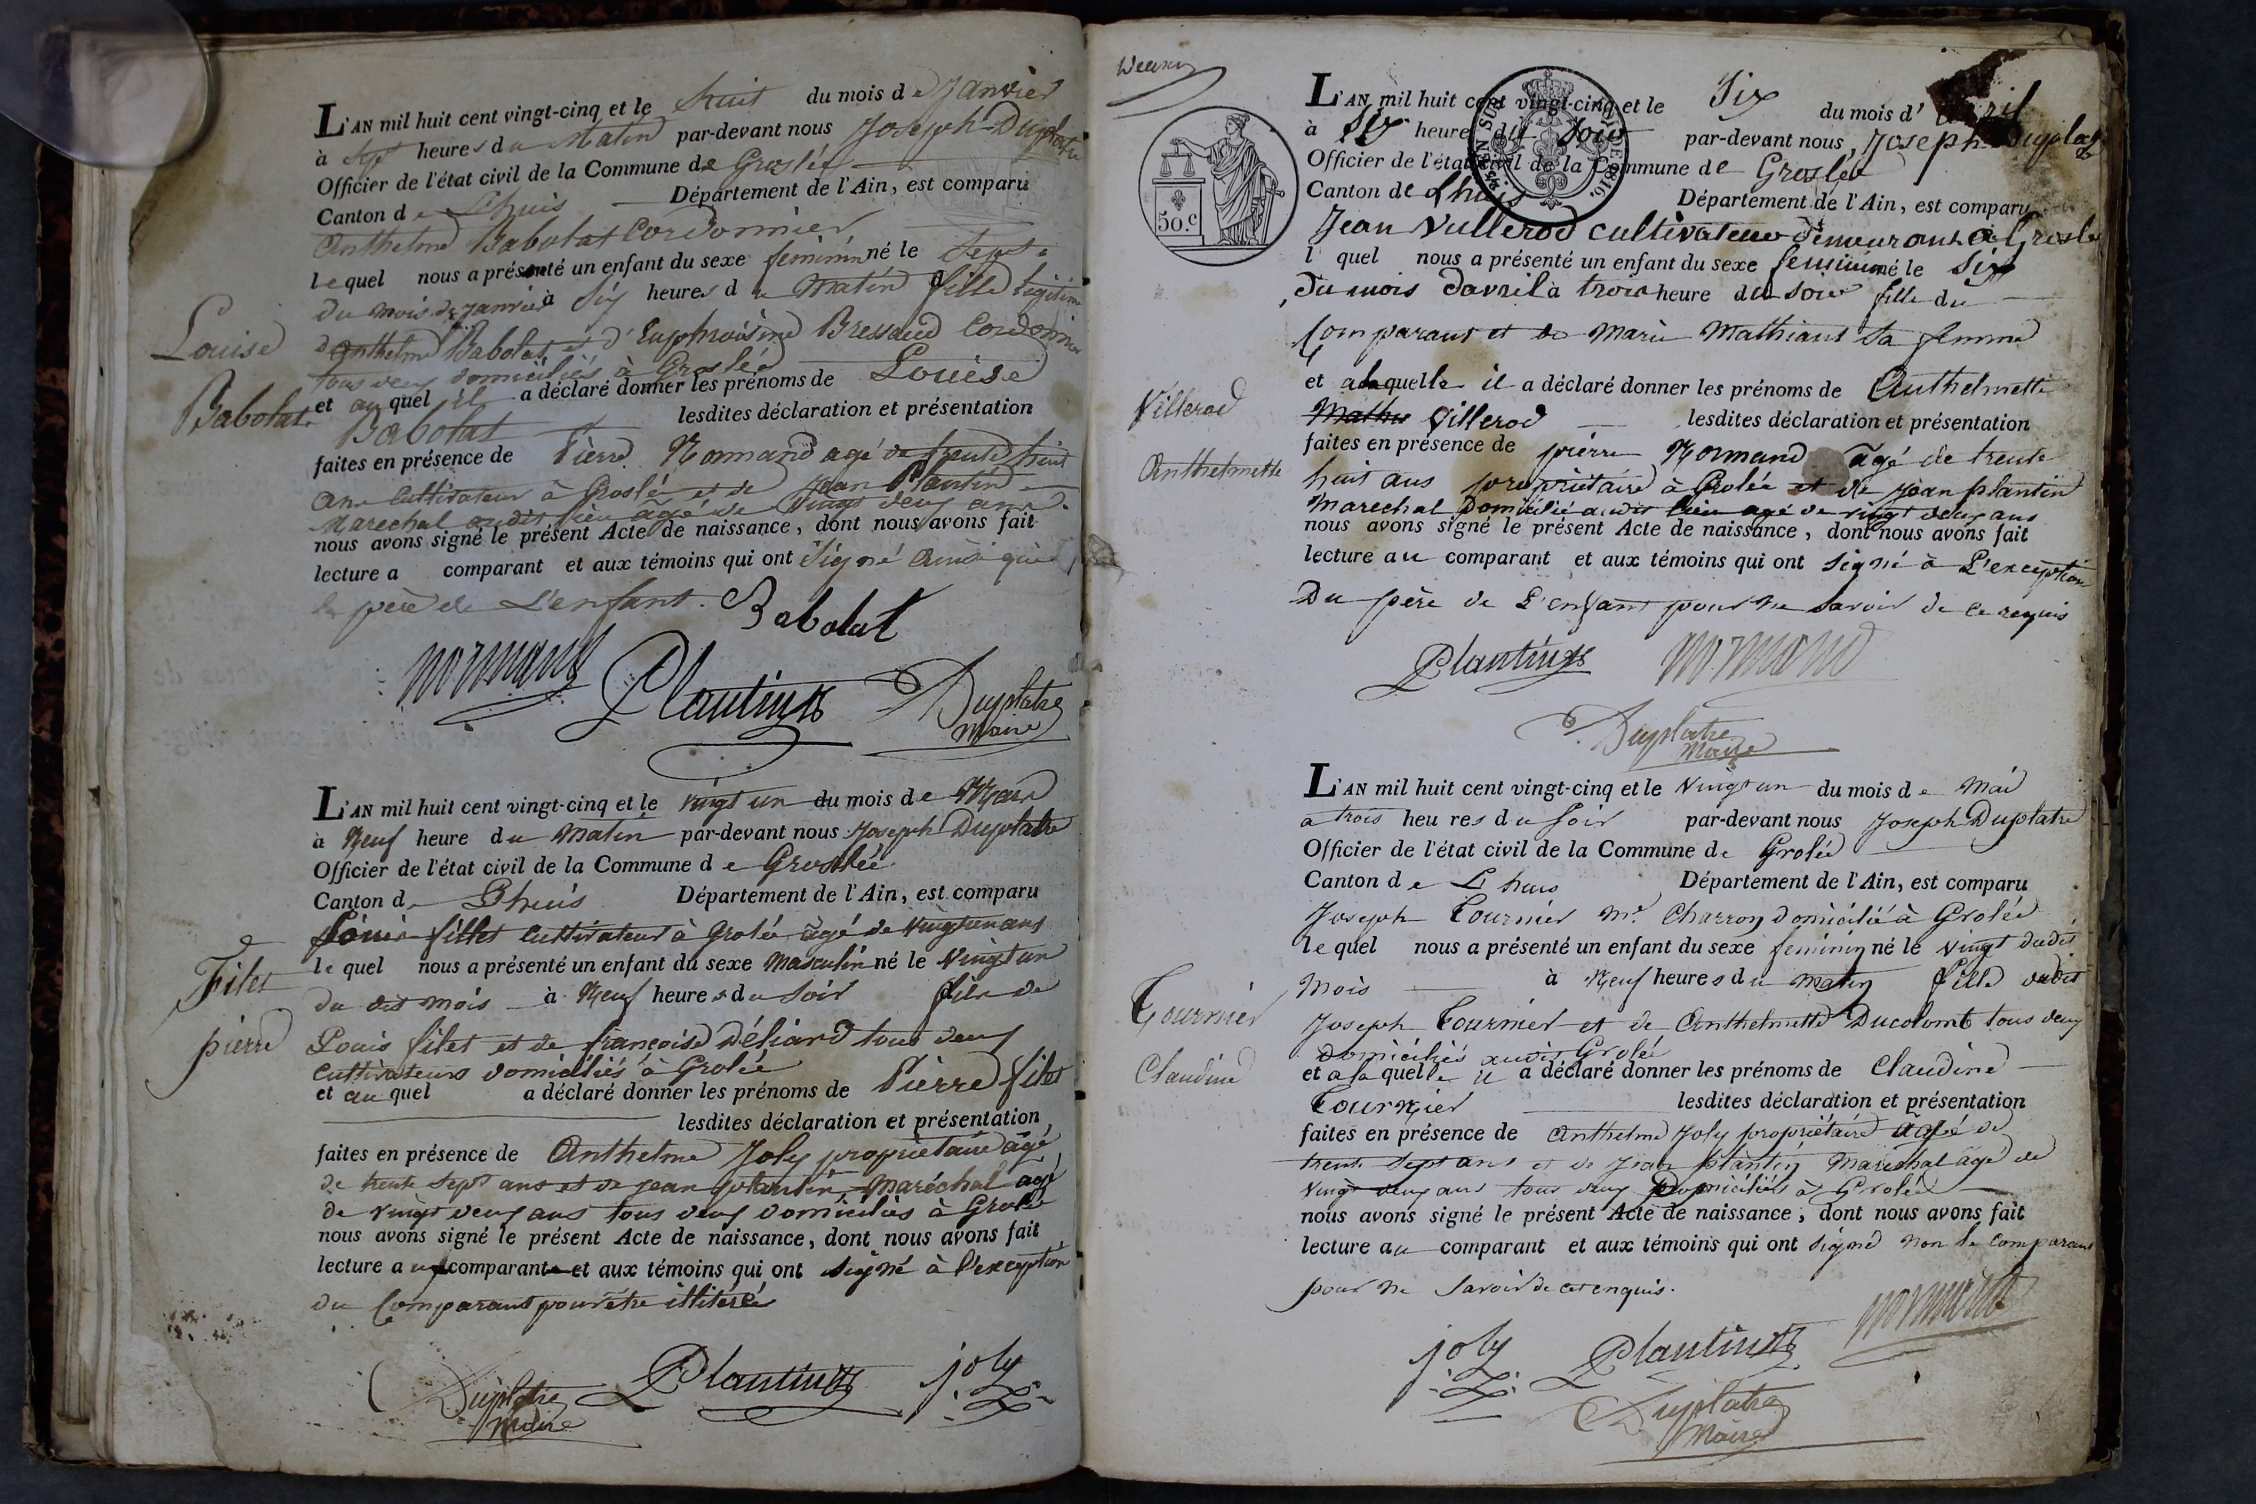 L'AN mil huit cent vingt-cinq et le huit du mois de Janvier
à sept heures du Matin par-devant nous Joseph Duplatre
Officier de l'état civil de la Commune de Groslée
Canton de Lhuis Département de l'Ain, est comparu
Anthelme Babolat Cordonnier
lequel nous a présenté un enfant du sexe féminin né le sept
du mois de Janvier à six heures du Matin fille légitime
d'Anthelme Babolat et d'Euphroisine Bressaud Cordonnier
tous deux domiciliés à Groslée
Louise
Babolat
et au quel il a déclaré donner les prénoms de Louise
Babolat lesdites déclaration et présentation
faites en présence de Pierre Normand agé de trente huit
ans Cultivateur à Groslé et de Jean Plantin
Marechal audit lieu agé de vingt deux ans.
nous avons signé le présent Acte de naissance, dont nous avons fait
lecture a comparant et aux témoins qui ont signé ainsi que
le père de L'enfant. Babolat
normand Plantin Duplatre
Maire
L'AN mil huit cent vingt-cinq et le vingt un du mois de Mars
à Neuf heure du Matin par-devant nous Joseph Duplatre
Officier de l'état civil de la Commune de Groslée
Canton de Lhuis Département de l'Ain, est comparu
Louis fillet Cultivateur à Grolée agé de vingt un ans
le quel nous a présenté un enfant du sexe Masculin né le vingt un
du dit mois à Neuf heures du soir fils de
Filet
pierre
Louis filet et de françoise Déliard tous deux
Cultivateurs domiciliés à Grolée
et au quel a déclaré donner les prénoms de Pierre filet
lesdites déclaration et présentation
faites en présence de Anthelme Joly propriétaire agé
de trente sept ans et de jean plantin Maréchal agé
de vingt deux ans tous deux domiciliés à Grolé
nous avons signé le présent Acte de naissance, dont nous avons fait
lecture au comparant et aux témoins qui ont signé à l'exception
du Comparant pour être illitéré
Duplatre Plantin joly
Maire
50.c
L'AN mil huit cent vingt-cinq et le Six du mois d'avril
à six heure du soir par-devant nous, Joseph Duplatre
Officier de l'état civil de la Commune de Groslée
Canton de Lhuis Département de l'Ain, est comparu
Jean Vullerod cultivateur demeurant à Groslé
l quel nous a présenté un enfant du sexe feminin né le Six
du mois d'avril à trois heure du soir fille du
Comparant et de Marie Mathiant sa femme
Villerod
Anthelmette
et à laquelle il a déclaré donner les prénoms de Anthelmette
Villerod lesdites déclaration et présentation
faites en présence de pierre Normand agé de trente
huit ans propriétaire à Grolée et de Jean plantin
Marechal Domicilié audit lieu agé de vingt deux ans
nous avons signé le présent Acte de naissance, dont nous avons fait
lecture au comparant et aux témoins qui ont signé à L'exception
Du père de L'enfant pour ne savoir de ce requis
Plantin normand
Duplatre
Maire
L'AN mil huit cent vingt-cinq et le vingt un du mois de Mai
à trois heures du soir par-devant nous Joseph Duplatre
Officier de l'état civil de la Commune de Grolée
Canton de Lhuis Département de l'Ain, est comparu
Joseph Tournier Md. Charron domicilié à Grolée
le quel nous a présenté un enfant du sexe feminin né le vingt dudit
Mois à Neuf heures du matin fille dudit
Tournier
Claudine
Joseph Tournier et de Anthelmette Ducolomb tous deux
domiciliés audit Grolée
et a la quelle il a déclaré donner les prénoms de Claudine
Tournier lesdites déclaration et présentation
faites en présence de Anthelme Joly propriétaire agé de
trente sept ans et de Jean plantin Maréchal agé de
vingt deux ans tous deux Domiciliés à Grolée
nous avons signé le présent Acte de naissance, dont nous avons fait
lecture au comparant et aux témoins qui ont signé non le comparant
pour ne savoir de ce enquis.
joly Plantin normand
Duplatre
Maire